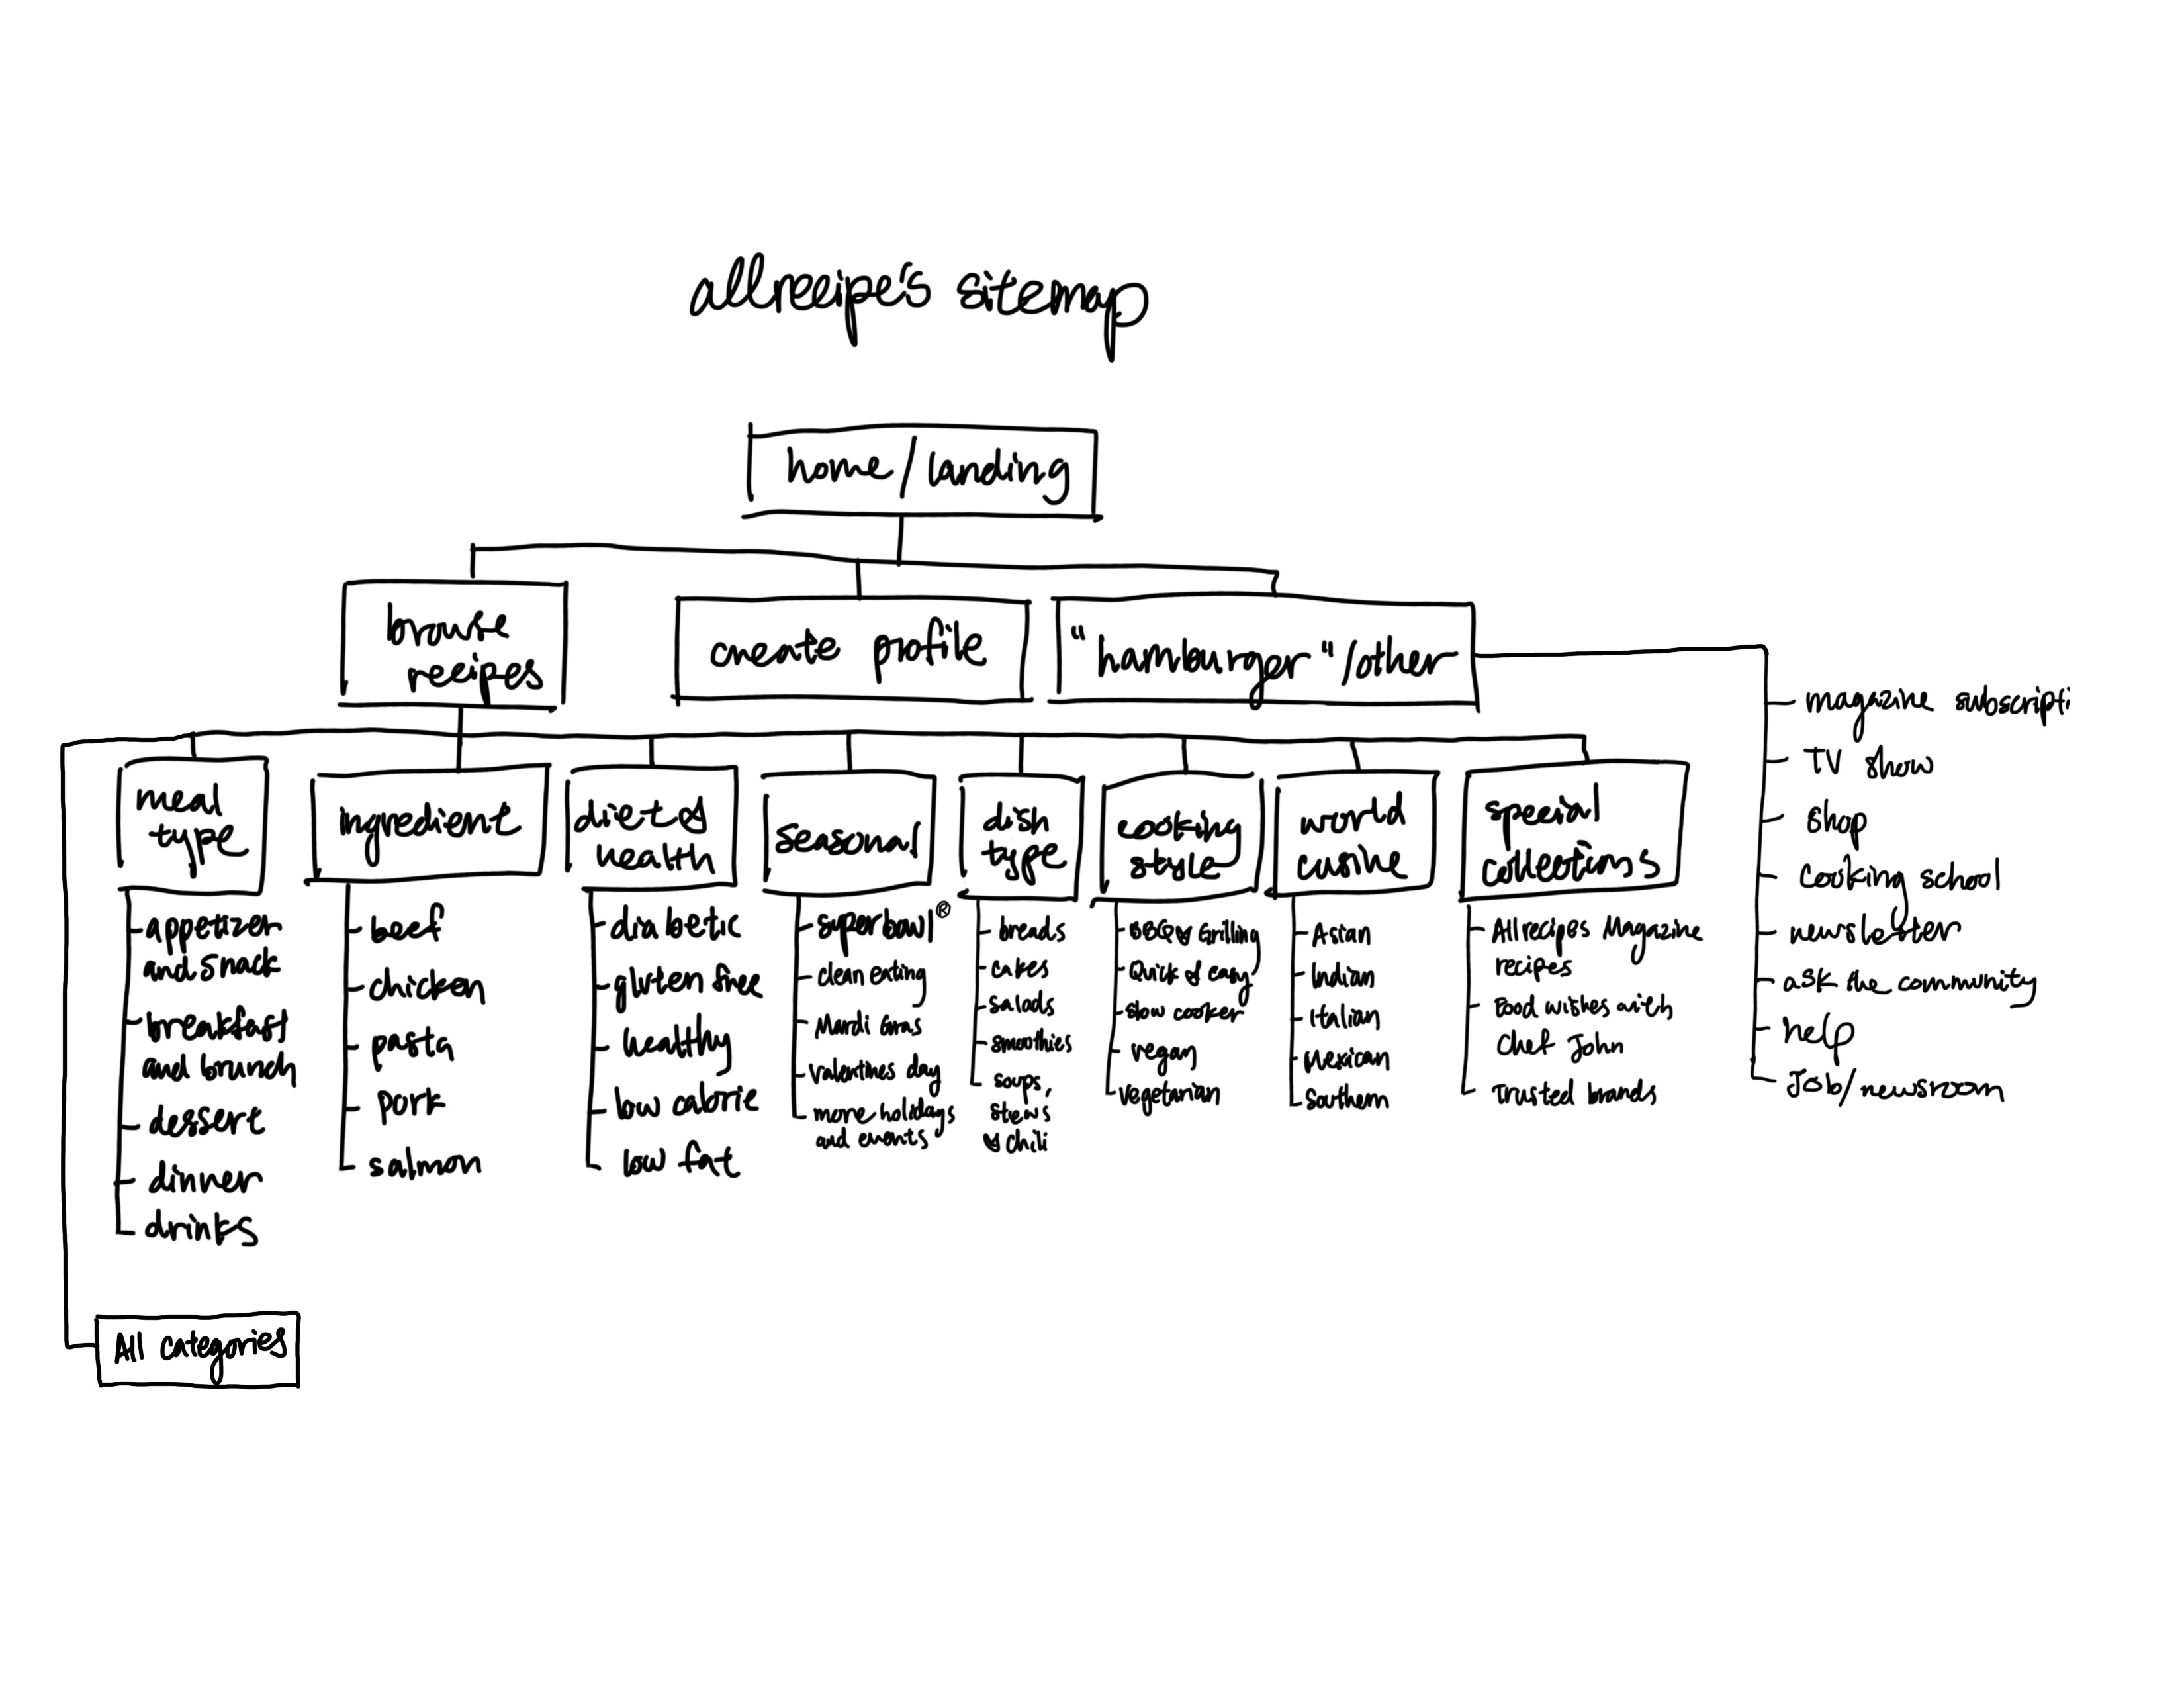 allrecipe's sitemap
home/landing
browse
recipes
create profile
"hamburger"/other
magazine subscripti
TV show
shop
cooking school
newsletter
ask the community
help
Job/newsroom
meal
type
appetizer
and snack
breakfast
and brunch
dessert
dinner
drinks
ingredient
beef
chicken
pasta
pork
salmon
diet &
health
diabetic
gluten free
healthy
low calorie
low fat
seasonal
superbowl®
clean eating
Mardi Gras
valentines day
more holidays
and events
dish
type
breads
cakes
salads
smoothies
soups,
stews,
& chili
cooking
style
BBQ & Grilling
Quick & easy
slow cooker
vegan
vegetarian
world
cusine
Asian
Indian
Italian
Mexican
Southern
special
collections
Allrecipes Magazine
recipes
Food wishes with
Chef John
Trusted brands
All categories